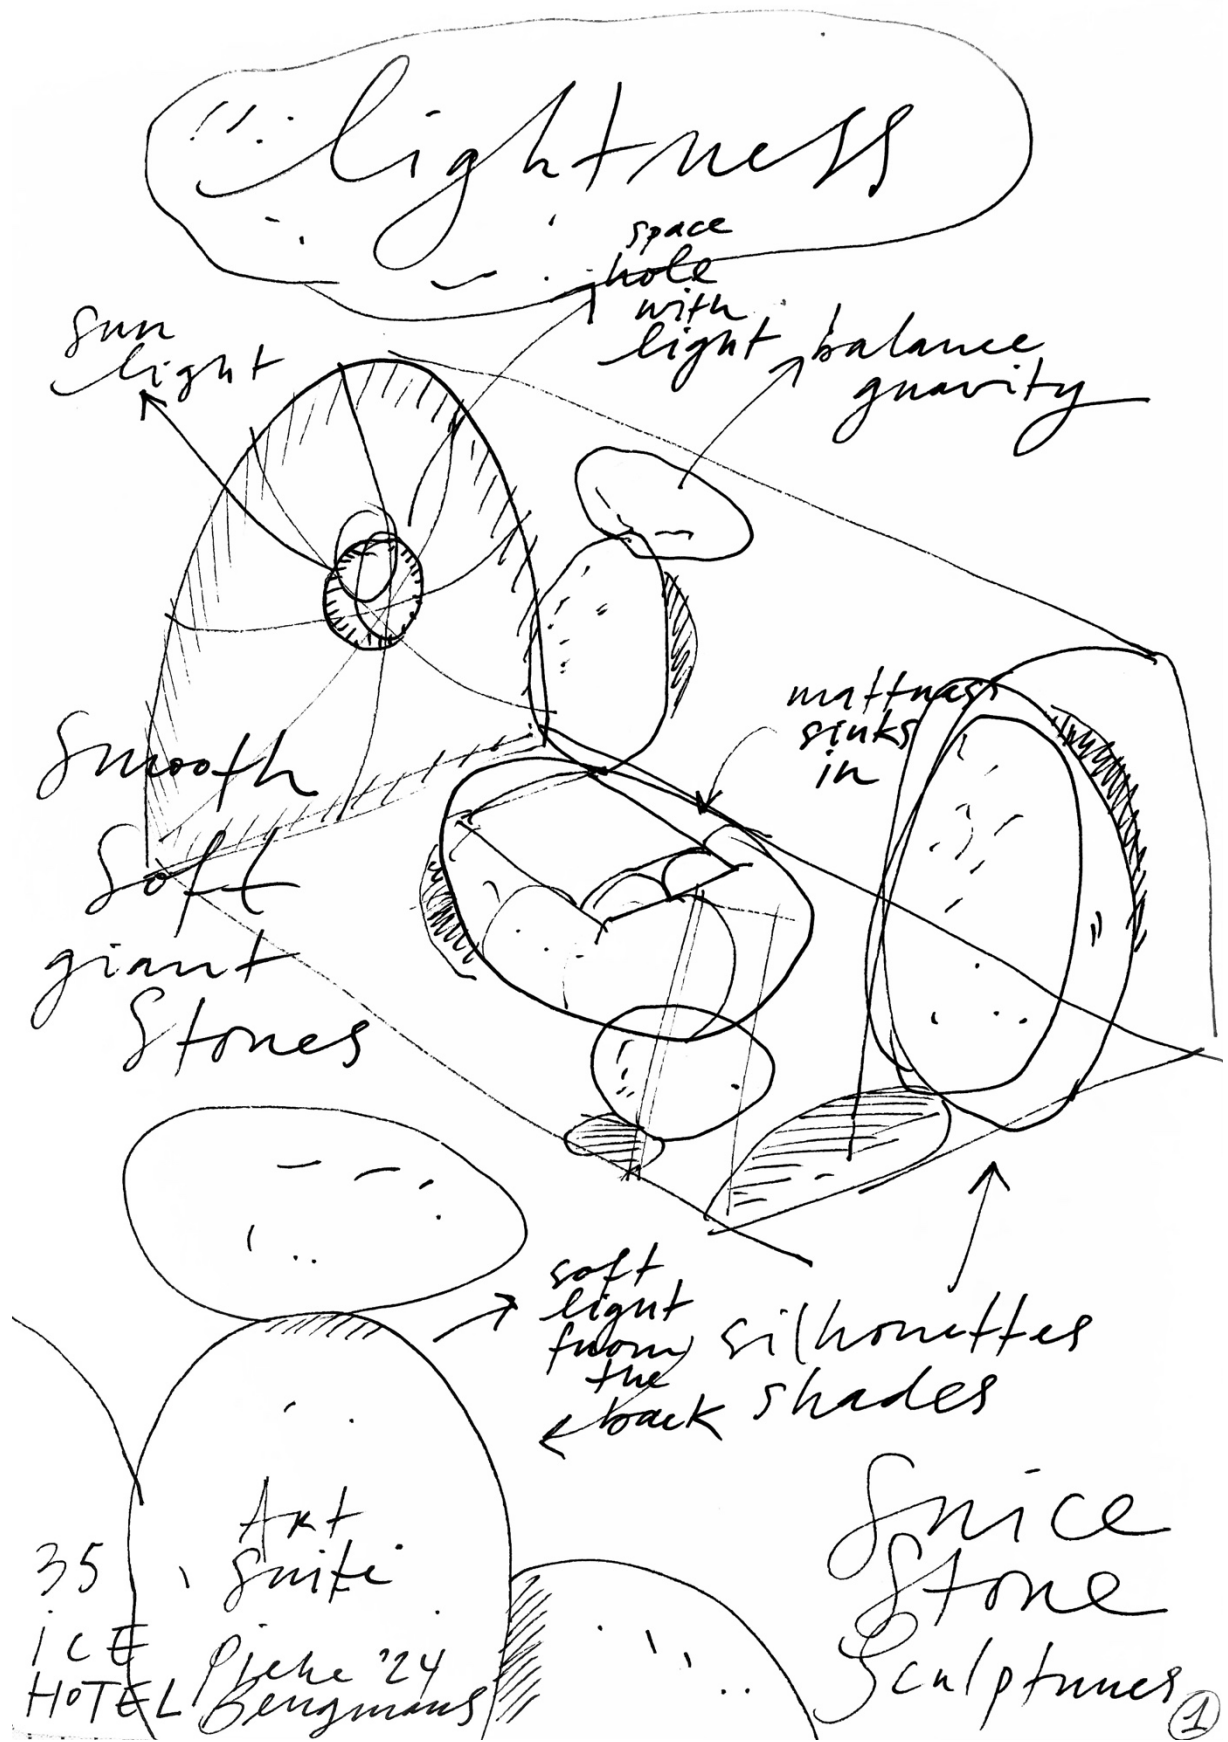 lightness
space
hole
with
light
sun
light
balance
gravity
mattrass
sinks
in
Smooth
Soft
giant
Stones
soft
light
from
the
back
silhouettes
shades
Art
Suite
35
ICE
HOTEL
Pieke '24
Bergmans
Snice
Stone
Sculptures
1